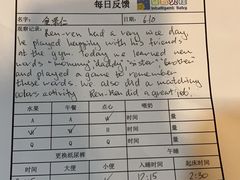 每日反馈
Intelligent Baby
姓名: 日期: 6/10
观察记录: Ren-ren had a very nice day.
He played happily with his friends
at the gym. Today we learned new
words "mommy" "daddy" "sister" "brother"
and played a game to remember
these words. We also did a matching
colors activity. Ren-Ren did a great job!
水果 午餐 点心 喝奶
A A A 时间 量
W W W 时间 量
Q Q Q 时间 量
更换纸尿裤
时间 大便 小便 入睡时间 起床时间
12:15 2:30